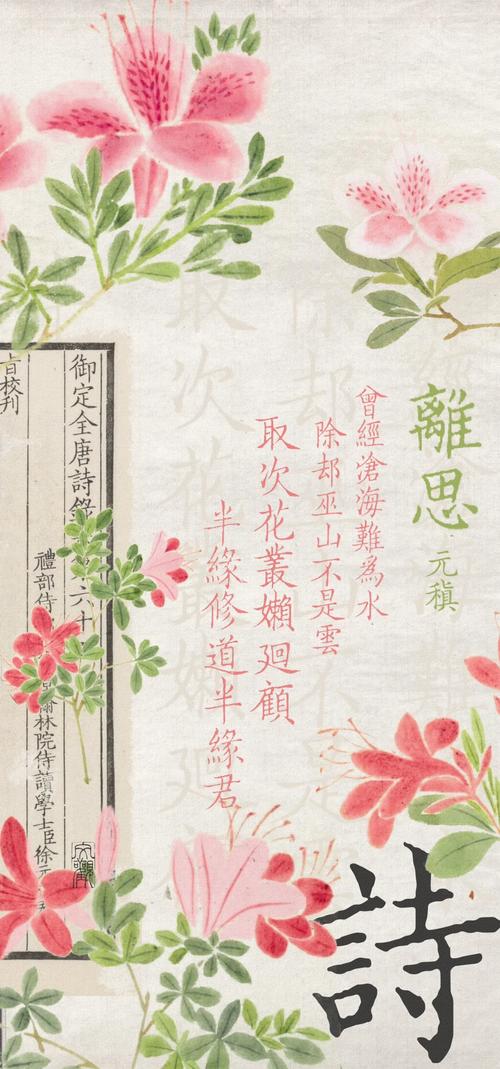 離思
元稹
曾經滄海難為水
除却巫山不是雲
取次花叢嬾廻顧
半緣修道半緣君
詩
御定全唐詩錄 六十
禮部侍 翰林院侍讀學士臣徐元
校刊